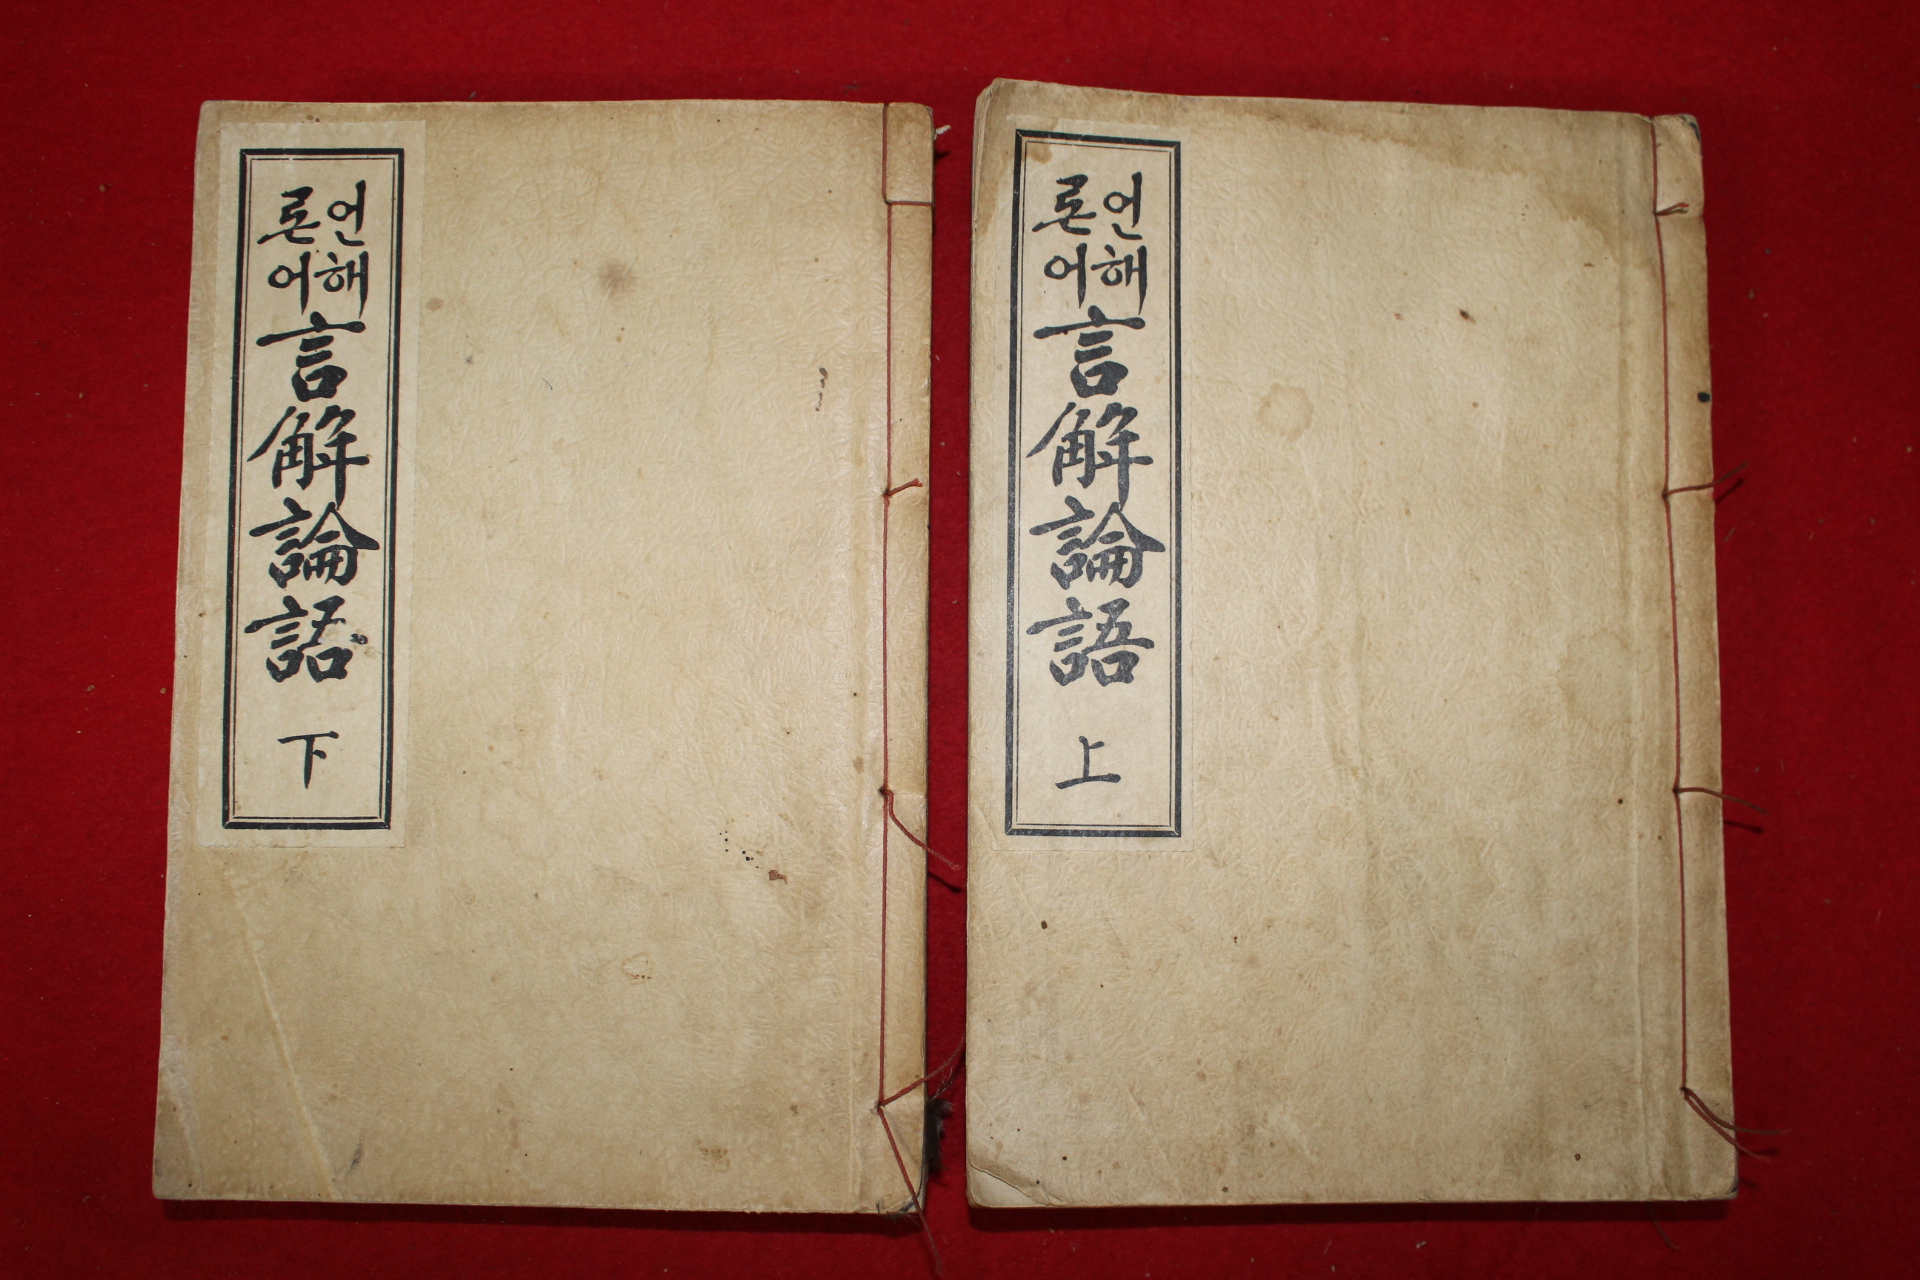 언해
론어
言解論語
下
언해
론어
言解論語
上